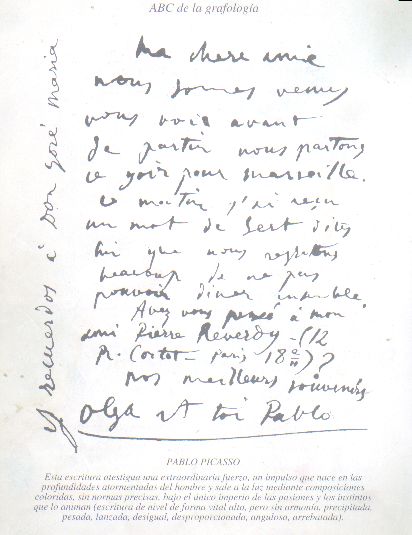 ABC de la grafología
Ma chere amie
nous somes venus
vous voir avant
de partir nous partons
ce soir pour marseille.
ce matin j'ai reçu
un mot de Sert dites
lui que nous regretons
beaucoup de ne pas
pouvoir diner ensemble.
Avez vous pensé à mon
ami Pierre Reverdy - (12
R. Cortot - Paris 18e)?
nos meilleurs souvenirs
Olga et toi Pablo
y recuerdos à Don José Maria
PABLO PICASSO
Esta escritura atestigua una extraordinaria fuerza, un impulso que nace en las
profundidades atormentadas del hombre y sale a la luz mediante composiciones
coloridas, sin normas precisas, bajo el único imperio de las pasiones y los instintos
que lo animan (escritura de nivel de forma vital alto, pero sin armonía, precipitada,
pesada, lanzada, desigual, desproporcionada, angulosa, arrebatada).